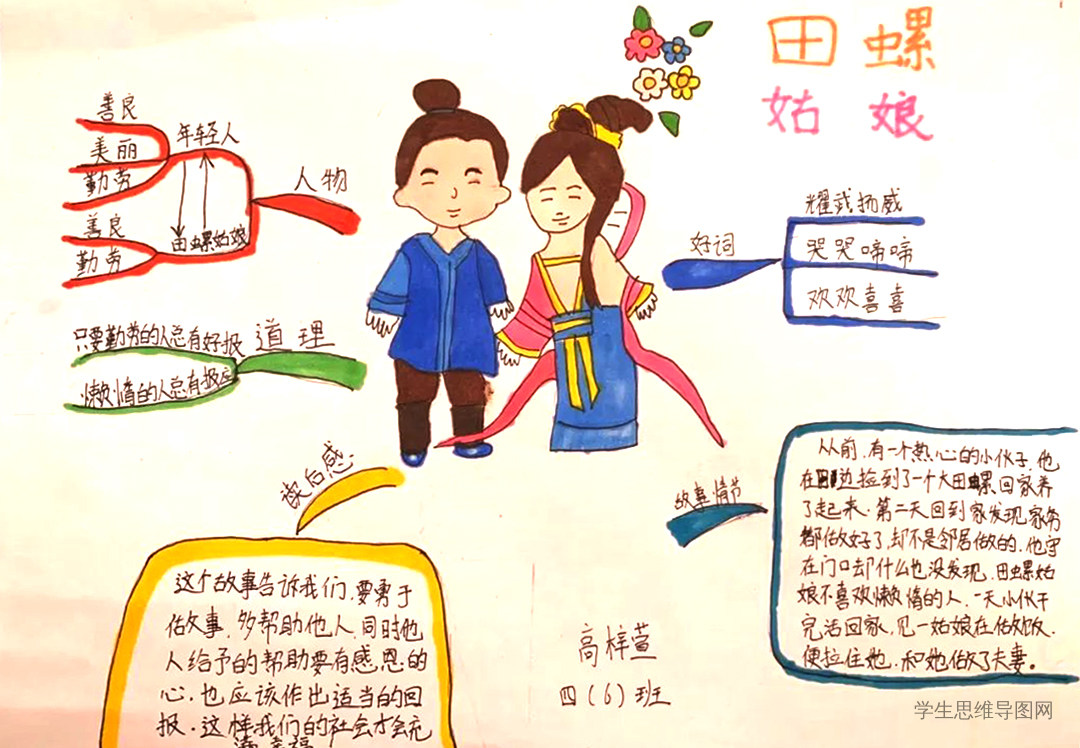 田螺
姑娘
善良
美丽
勤劳
年轻人
善良
勤劳
田螺姑娘
人物
只要勤劳的人总有好报
道理
懒惰的人总有报应
好词
耀武扬威
哭哭啼啼
欢欢喜喜
读后感
这个故事告诉我们,要勇于
做事,多帮助他人,同时他
人给予的帮助要有感恩的
心.也应该作出适当的回
报.这样我们的社会才会充
满幸福
故事情节
从前,有一个热心的小伙子,他
在田边捡到了一个大田螺回家养
了起来.第二天回到家发现家务
都做好了,却不是邻居做的.他守
在门口却什么也没发现,田螺姑
娘不喜欢懒惰的人,一天小伙干
完活回家,见一姑娘在做饭,
便拉住她,和她做了夫妻。
高梓萱
四(6)班
学生思维导图网